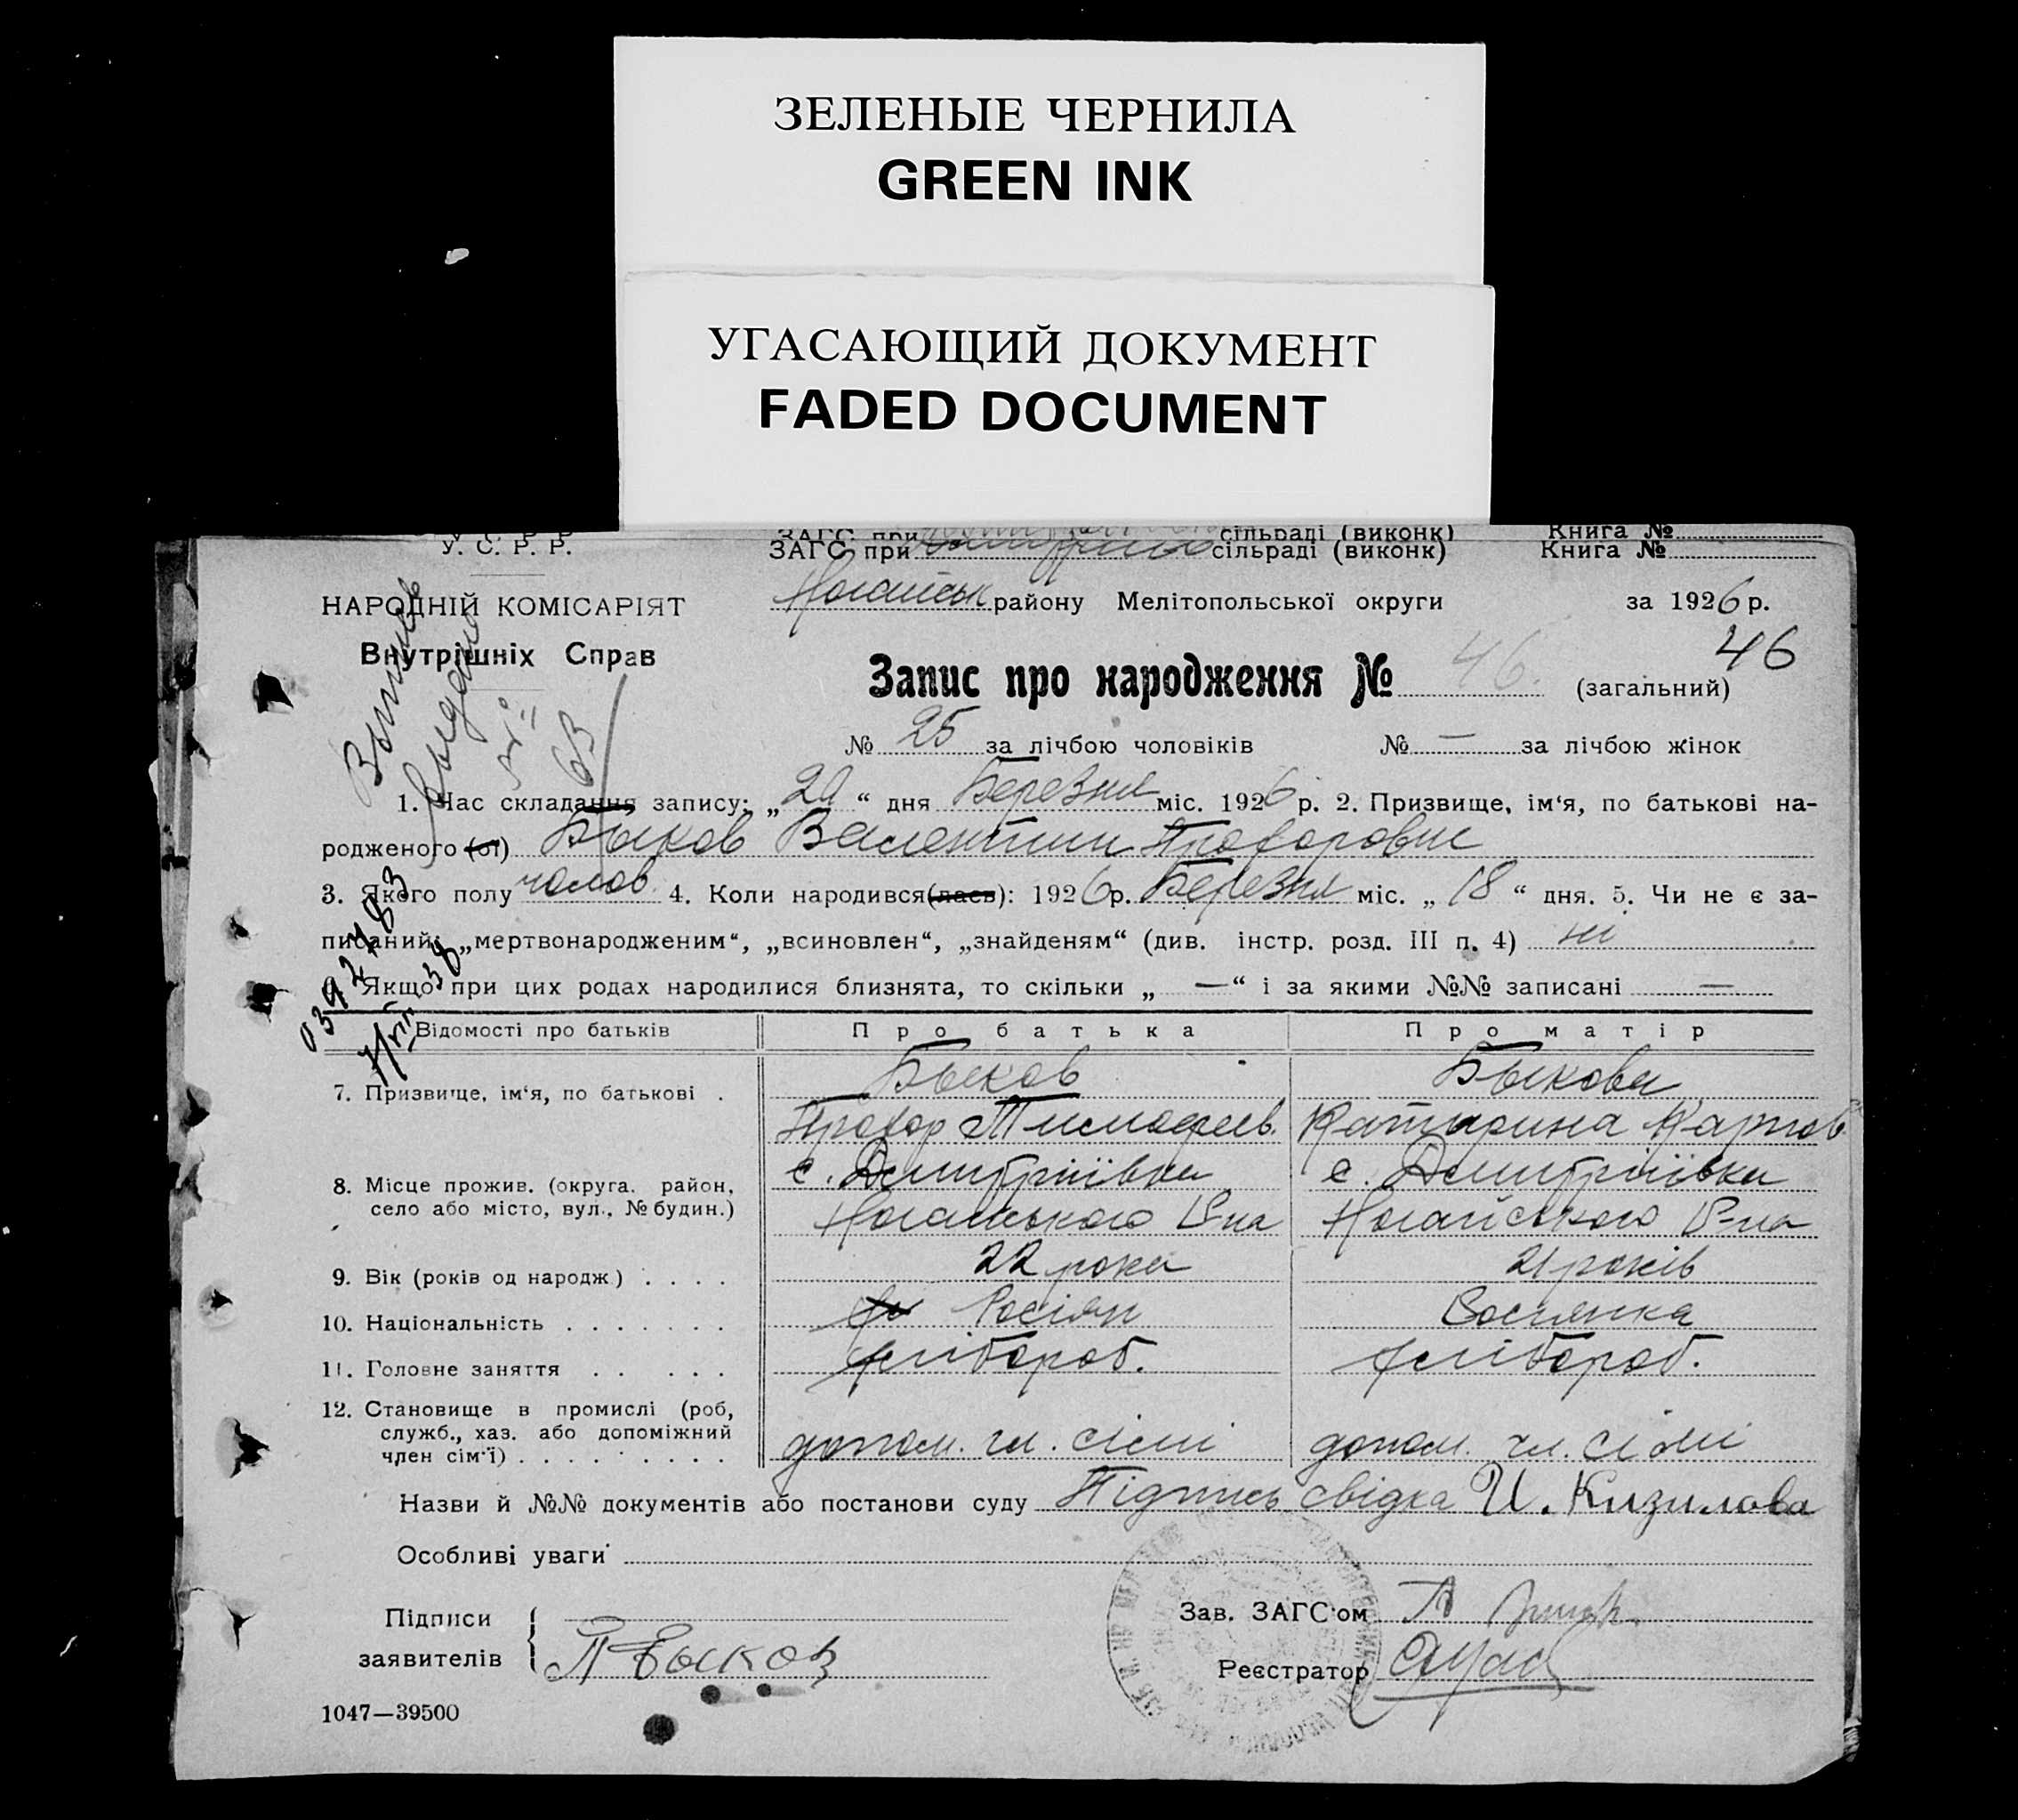 ЗЕЛЕНЫЕ ЧЕРНИЛА
GREEN INK
УГАСАЮЩИЙ ДОКУМЕНТ
FADED DOCUMENT
ЗАГС при сільраді (виконк) Книга №
У. С. Р. Р. ЗАГС при сільраді (виконк) Книга №
НАРОДНІЙ КОМІСАРІЯТ Ногайськ району Мелітопольської округи за 1926 р.
Внутрішніх Справ
46
Запис про народження № 46. (загальний)
№ 25 за лічбою чоловіків № — за лічбою жінок
63
1. Час складання запису: „ “ дня Березня міс. 1926 р. 2. Призвище, ім‘я, по батькові на-
родженого (ої) Быков Валентин Прохорович
3. Якого полу чолов. 4. Коли народився(лась): 1926 р. Березня міс. „ 18 “ дня. 5. Чи не є за-
писаний: „мертвонародженим“, „всиновлен“, „знайденям“ (див. інстр. розд. III п. 4) ні
6. Якщо при цих родах народилися близнята, то скільки „ — “ і за якими №№ записані —
Відомості про батьків Про батька Про матір
7. Призвище, ім‘я, по батькові . Быков Быкова
Прохор Тимофеев. Катирина Карпов
8. Місце прожив. (округа, район, село або місто, вул., № будин.) с. Дмитріївка с. Дмитріївка
Ногайського Р-на Ногайського Р-на
9. Вік (років од народж) . . . . 22 роки 21 років
10. Національність . . . . . . . Росіян Росіянка
11. Головне заняття . . . . . хлібороб. хлібороб.
12. Становище в промислі (роб,
служб., хаз. або допоміжний
член сім‘ї) . . . . . . . . . допом. чл. сімї допом. чл. сімї
Назви й №№ документів або постанови суду Підпись свідка И. Кизилова
Особливі уваги
Підписи Зав. ЗАГС‘ом
заявителів П Быков Реєстратор
1047—39500